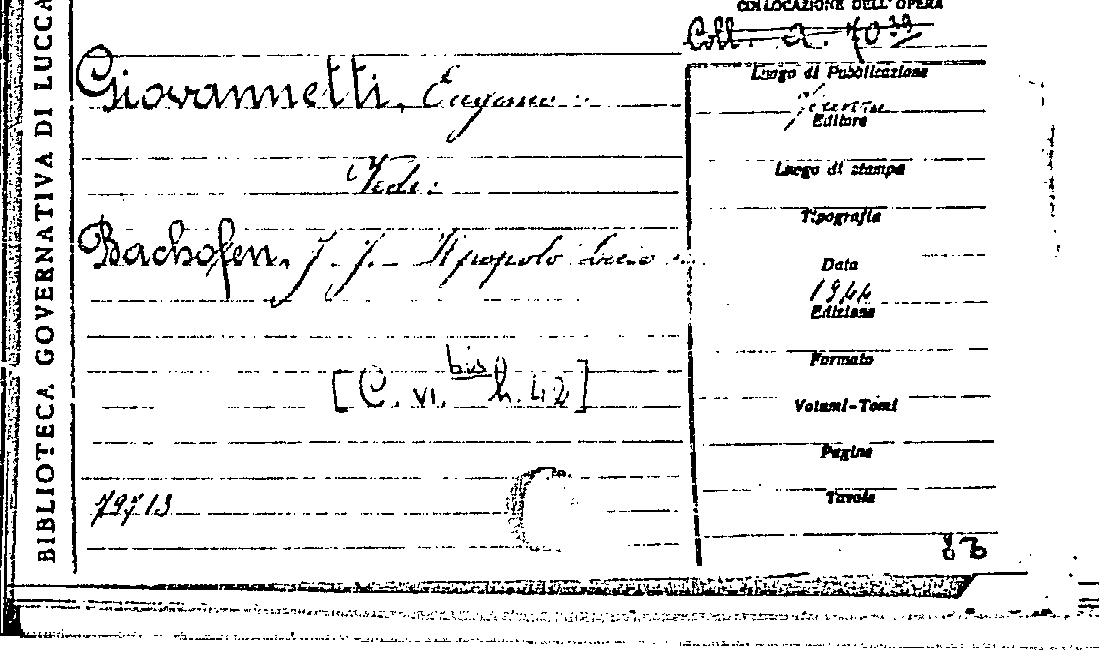 BIBLIOTECA GOVERNATIVA DI LUCCA
COLLOCAZIONE DELL'OPERA
Coll. a. 70 39
Giovannetti, Eugenio:
Vedi:
Bachofen, J. J. - Il popolo licio
[C. VI. bis h. 42]
79713
Luogo di Pubblicazione
Editore
Luogo di stampa
Tipografia
Data
1944
Edizione
Formato
Volumi-Tomi
Pagine
Tavole